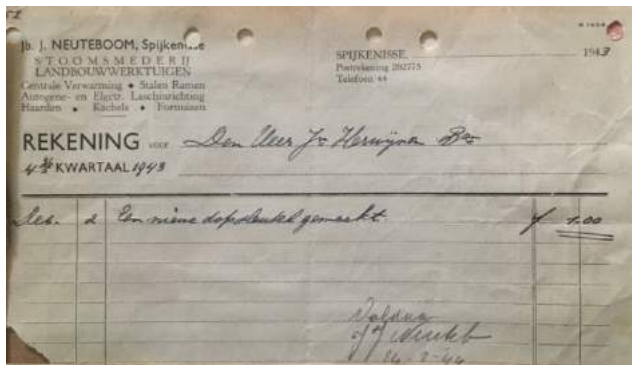 Jb. J. NEUTEBOOM, Spijkenisse
STOOMSMEDERIJ
LANDBOUWWERKTUIGEN
Centrale Verwarming ♦ Stalen Ramen
Autogene- en Electr. Laschinrichting
Haarden ♦ Kachels ♦ Fornuizen
SPIJKENISSE, 1943
Postrekening 282775
Telefoon 44
REKENING VOOR Den Heer Jv Herwijnen
4de KWARTAAL 1943
Dec. 2 Een nieuwe dopsleutel gemaakt. f 1.00
Voldaan
14-2-44